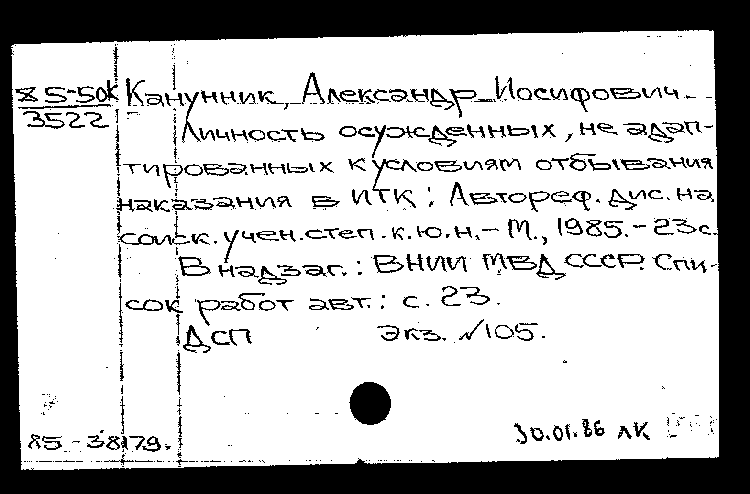 85-50к Канунник, Александр Иосифович.
3522
Личность осужденных, не адап-
тированных к условиям отбывания
наказания в ИТК: Автореф. дис. на
соиск. учен. степ. к.ю.н. - М., 1985. - 23 с.
В надзаг.: ВНИИ МВД СССР. Спи-
сок работ авт.: с. 23.
ДСП Экз. №105.
85-38179.
30.01.86 ЛК